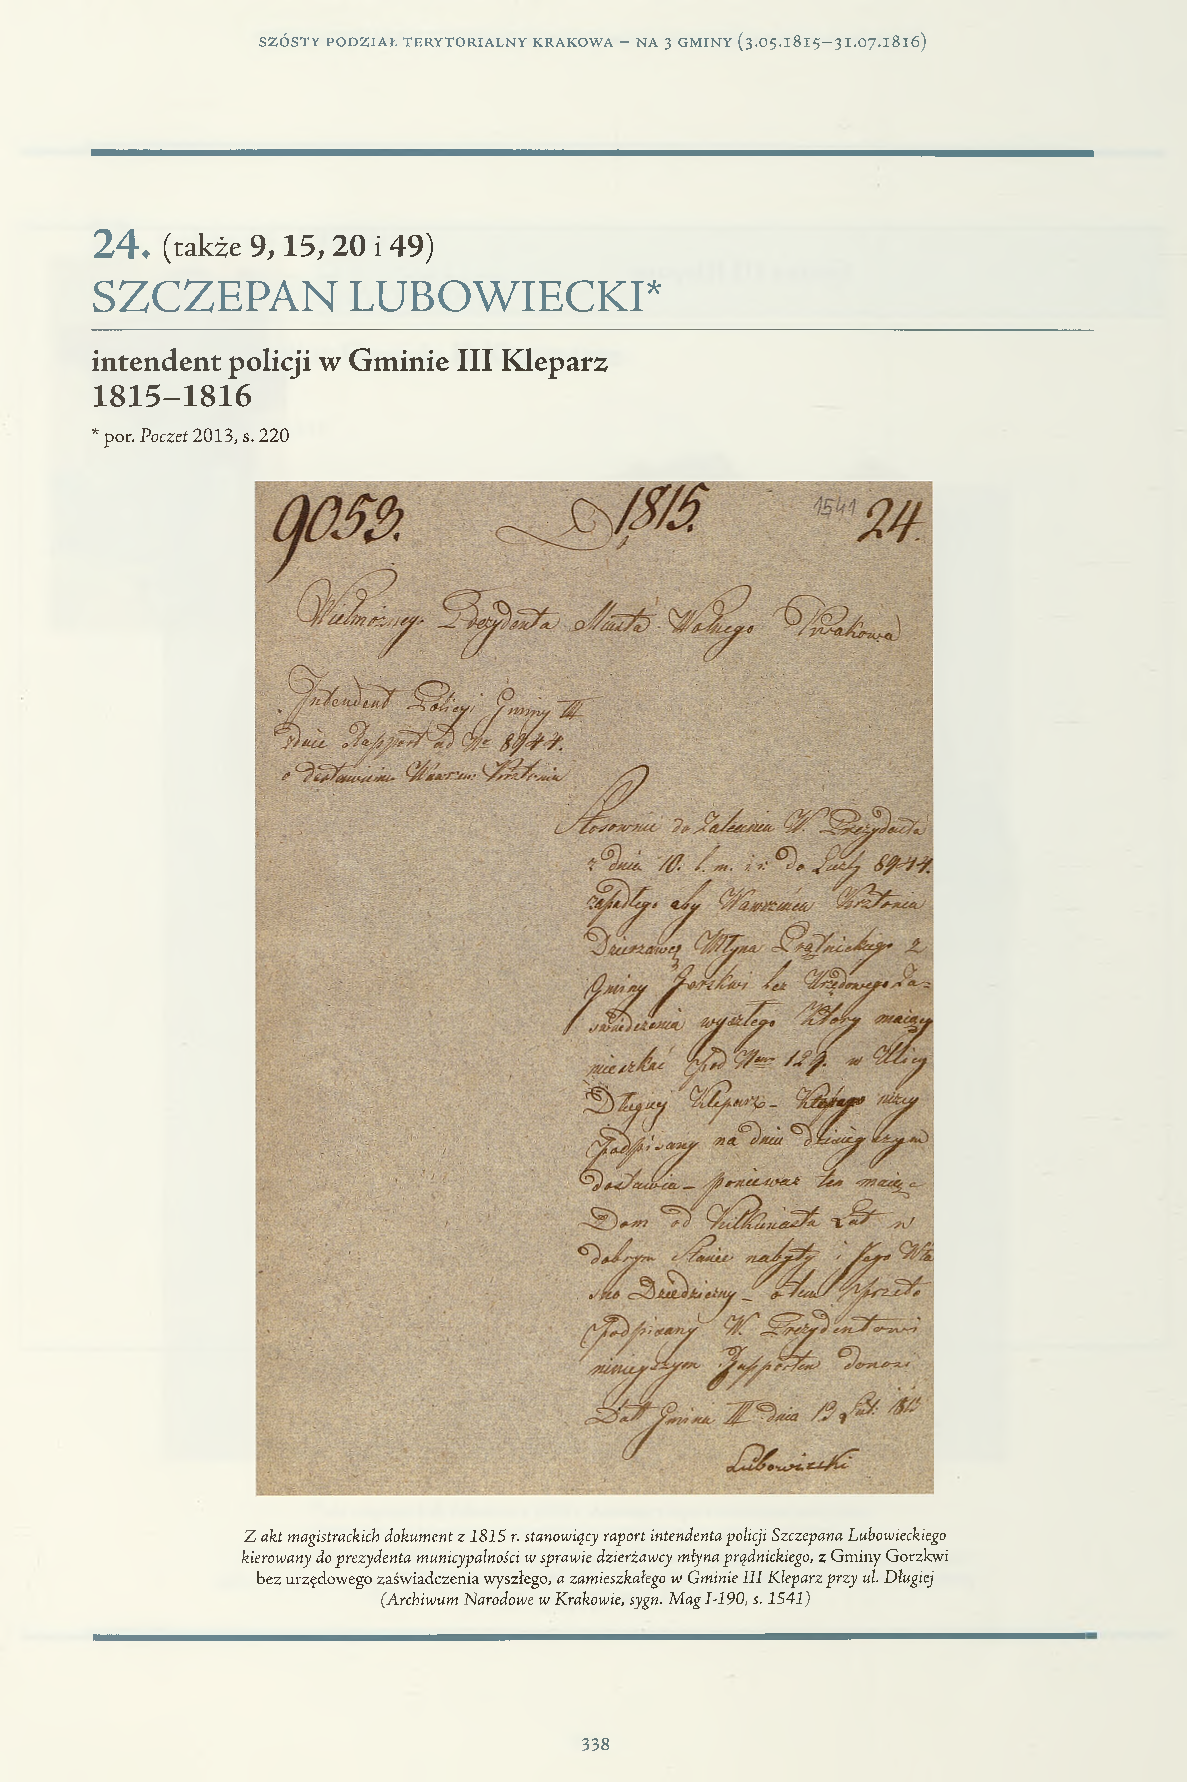 SZÓSTY PODZIAŁ TERYTORIALNY KRAKOWA – NA 3 GMINY (3.05.1815–31.07.1816)
24. (także 9, 15, 20 i 49)
SZCZEPAN LUBOWIECKI*
intendent policji w Gminie III Kleparz
1815–1816
* por. Poczet 2013, s. 220
9053. 1815. 1541 24.
Wielmożnego Prezydenta Miasta Wolnego Krakowa
Intendent Policyi Gminy III
zdaie Rapport ad Nr 8944.
o dostawieniu Wawrzeńca Krztonia
Stosownie do Zalecenia W. Prezydenta
z dnia 10. b. m. i r. do Liczby 8944.
zapadłego aby Wawrzeńca Krztonia
Dzierzawcę Młyna Prątnickiego z
Gminy Gorzkwi bez Urzędowego Za=
swiadczenia wyszłego Ktory maiący
mieszkać pod Nrem 129. w Ulicy
Długiey Kleparz – Ktorego niżey
Podpisany na dniu dzisieyszym
dostawia – poniewaz ten maiąc
Dom od Kilkunastu Lat w
dobrym Stanie nabyty i Jego Wła
sno Dziedziczny – o tem przeto
Podpisany W. Prezydentowi
ninieyszym Rapportem donosi
Datt Gmina III dnia 13 1815
Lubowiecki
Z akt magistrackich dokument z 1815 r. stanowiący raport intendenta policji Szczepana Lubowieckiego
kierowany do prezydenta municypalności w sprawie dzierżawcy młyna prądnickiego, z Gminy Gorzkwi
bez urzędowego zaświadczenia wyszłego, a zamieszkałego w Gminie III Kleparz przy ul. Długiej
(Archiwum Narodowe w Krakowie, sygn. Mag I-190, s. 1541)
338